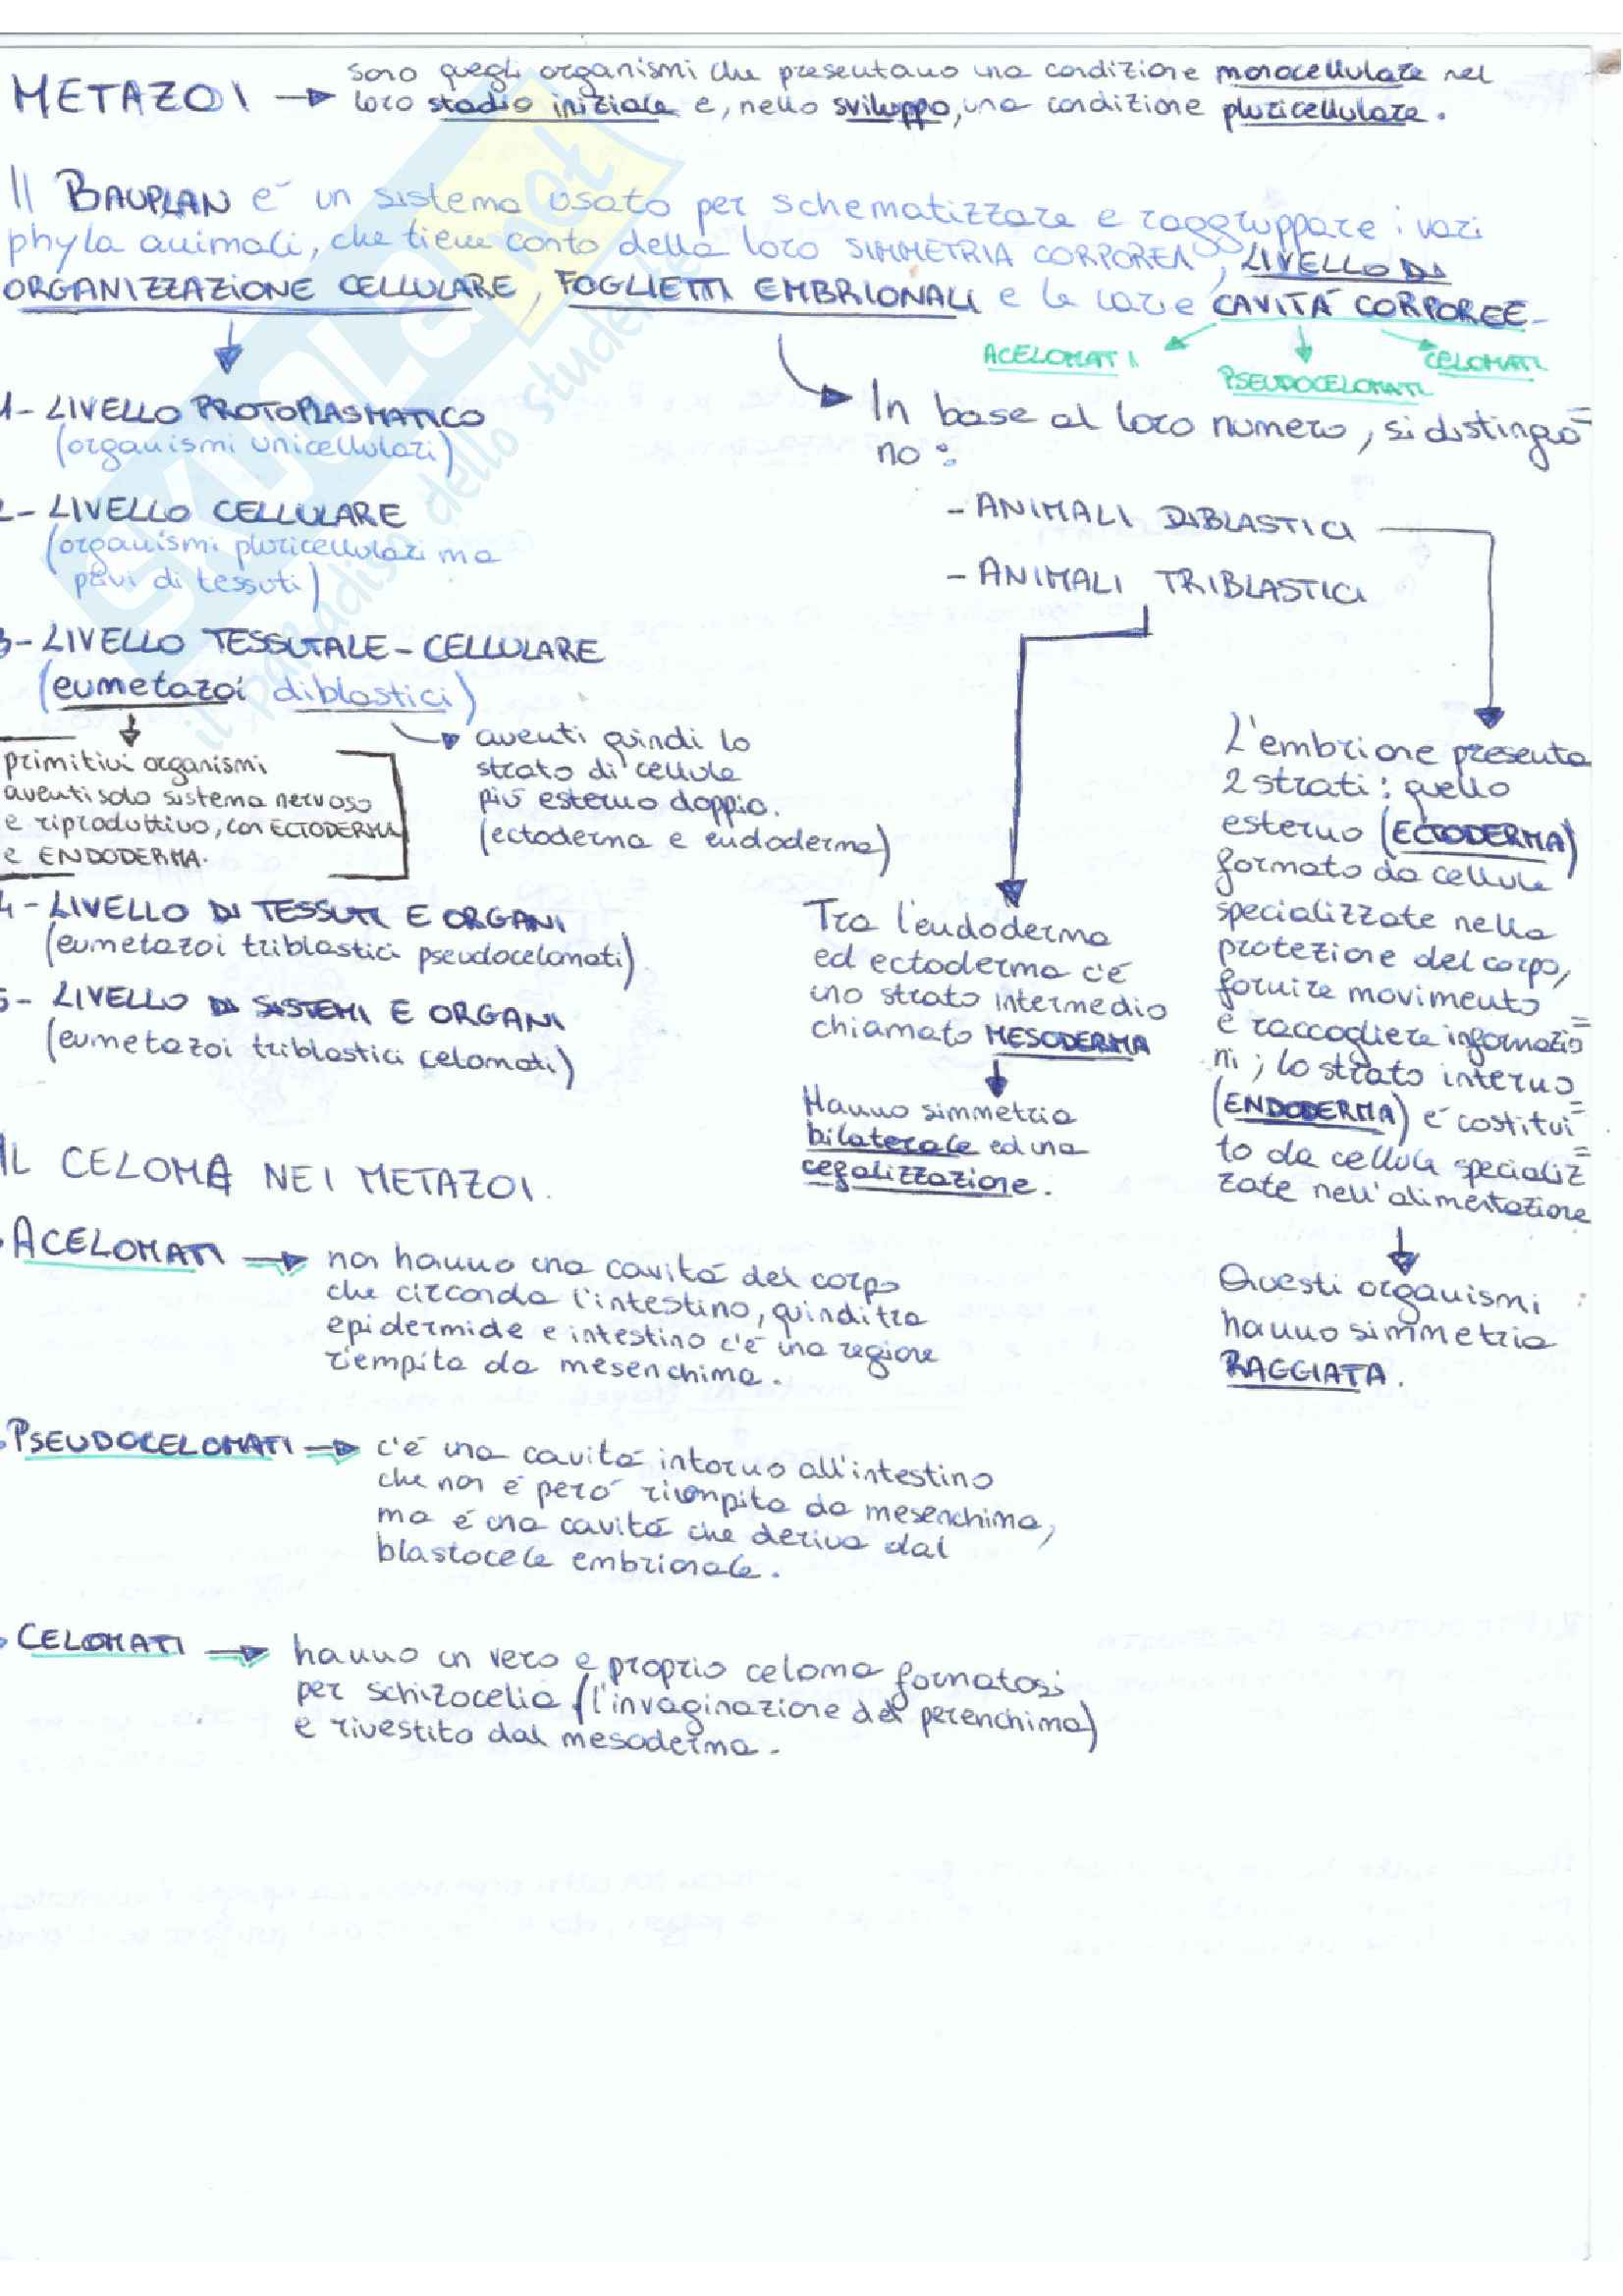 METAZOI → sono quegli organismi che presentano una condizione monocellulare nel
loro stadio iniziale e, nello sviluppo, una condizione pluricellulare.
Il BAUPLAN è un sistema usato per schematizzare e raggruppare i vari
phyla animali, che tiene conto della loro SIMMETRIA CORPOREA, LIVELLO DI
ORGANIZZAZIONE CELLULARE, FOGLIETTI EMBRIONALI e le varie CAVITÁ CORPOREE
ACELOMATI
PSEUDOCELOMATI
CELOMATI
1- LIVELLO PROTOPLASMATICO
(organismi unicellulari)
2- LIVELLO CELLULARE
(organismi pluricellulari ma
pivi di tessuti)
3- LIVELLO TESSUTALE-CELLULARE
(eumetazoi diblastici)
primitivi organismi
aventi solo sistema nervoso
e riproduttivo, con ECTODERMA
e ENDODERMA.
aventi quindi lo
strato di cellule
più esterno doppio.
(ectoderma e endoderma)
4- LIVELLO DI TESSUTI E ORGANI
(eumetazoi triblastici pseudocelomati)
5- LIVELLO DI SISTEMI E ORGANI
(eumetazoi triblastici celomati)
In base al loro numero, si distinguo=
no:
- ANIMALI DIBLASTICI
- ANIMALI TRIBLASTICI
Tra l'endoderma
ed ectoderma c'è
uno strato intermedio
chiamato MESODERMA
Hanno simmetria
bilaterale ed una
cefalizzazione.
L'embrione presenta
2 strati: quello
esterno (ECTODERMA)
formato da cellule
specializzate nella
protezione del corpo,
fornire movimento
e raccogliere informazio=
ni; lo strato interno
(ENDODERMA) è costitui=
to da cellule specializ=
zate nell'alimentazione
Questi organismi
hanno simmetria
RAGGIATA.
IL CELOMA NEI METAZOI.
• ACELOMATI → non hanno una cavità del corpo
che circonda l'intestino, quindi tra
epidermide e intestino c'è una regione
riempita da mesenchima.
• PSEUDOCELOMATI → c'è una cavità intorno all'intestino
che non è però riempita da mesenchima,
ma è una cavità che deriva dal
blastocele embrionale.
• CELOMATI → hanno un vero e proprio celoma formatosi
per schizocelia (l'invaginazione del perenchima)
e rivestito dal mesoderma.
SKUOLA.net
il paradiso dello studente